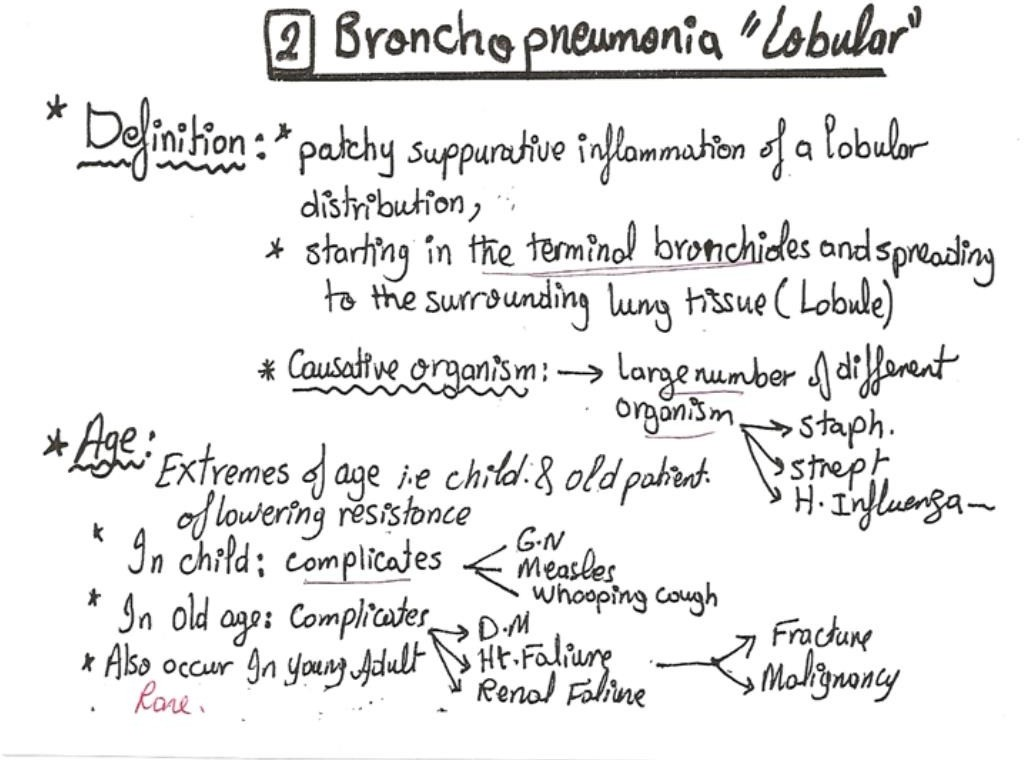 2 Bronchopneumonia "Lobular"
* Definition: * patchy suppurative inflammation of a lobular
distribution,
* starting in the terminal bronchioles and spreading
to the surrounding lung tissue (Lobule)
* Causative organism: → Large number of different
organism → staph.
→ strept
→ H. Influenza
* Age:
Extremes of age i.e child. & old patient.
of lowering resistance
* In child: complicates G.N
Measles
Whooping cough
* In old age: Complicates → D.M
→ Ht. Faliure → Fracture
→ Renal Faliure → Malignancy
* Also occur In young Adult
Rare.